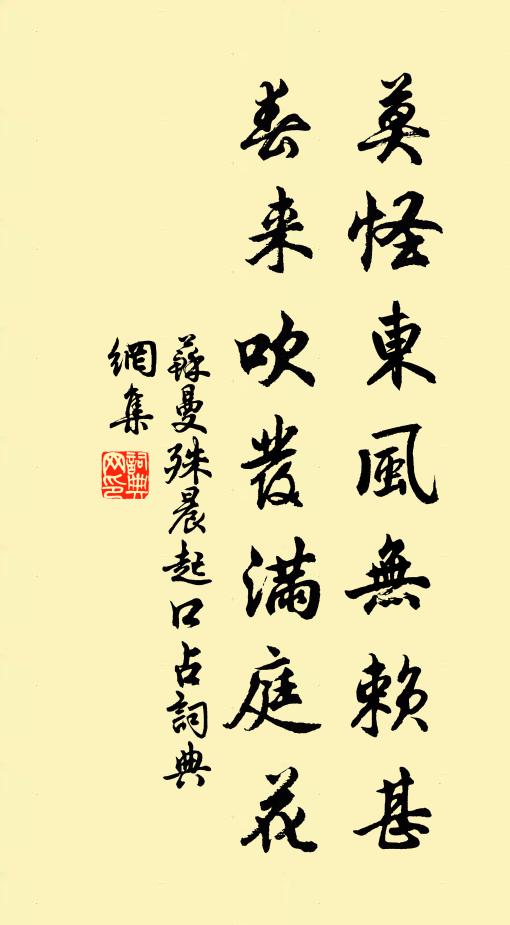 莫怪東風無賴甚
春来吹發滿庭花
蘇曼殊晨起口占詞典
網集
詞典网印